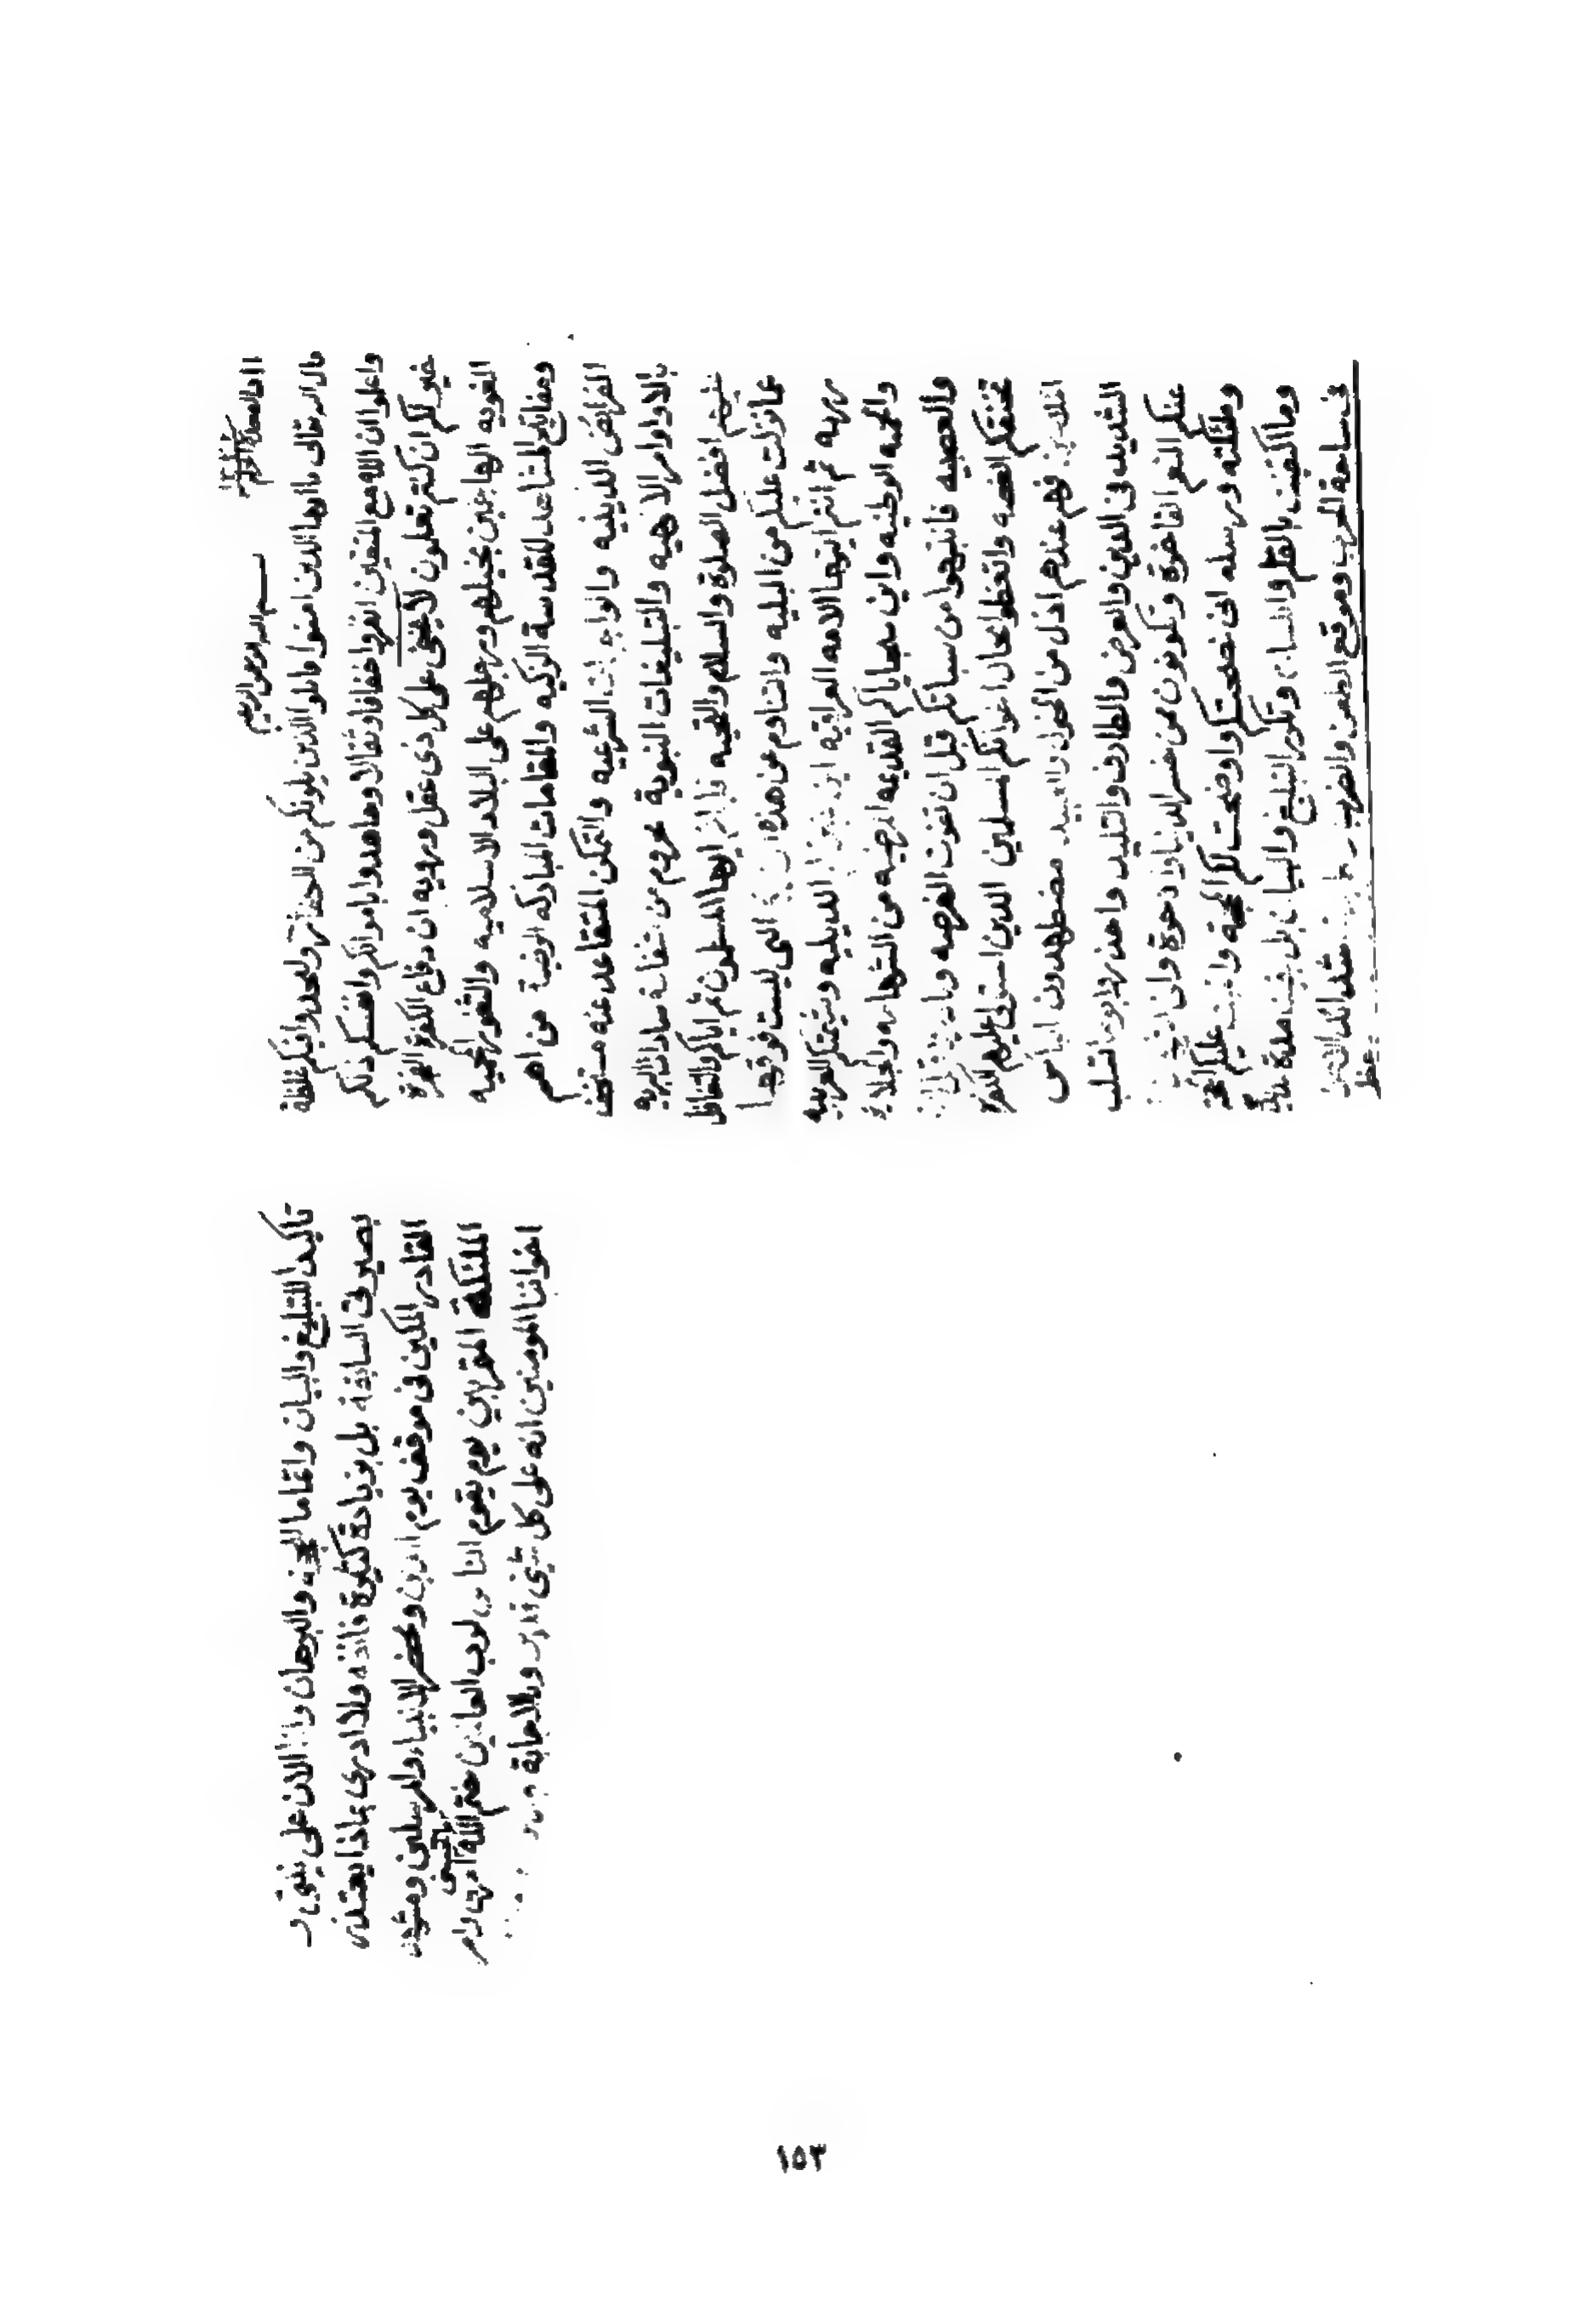 بسم الله الرحمن الرحيم
قال الله تعالى يا ايها الذين امنوا قاتلوا الذين يلونكم من الكفار وليجدوا فيكم غلظة
واعلموا ان الله مع المتقين انفروا خفافا وثقالا وجاهدوا باموالكم وانفسكم ذلكم
خير لكم ان كنتم تعلمون لا يخفى على كل ذي عقل ورويه ان دفاع الكفرة الفجرة
الغويه الهاجمين بخيلهم ورجلهم على البلاد الاسلاميه والثغور المحميه
ومفاتيح المشاهد المقدسة الزكيه والمقامات المباركه الرضية من اهم
الفرائض الدينيه والواجبات الشرعيه والتمكن المتقاعد عنه مستخف
بالاوامر الالاهيه والتبليغات النبوية محروم من شفاعة سادات البريه
عليهم افضل الصلوة والسلام والتحيه ايها المسلمون ثم اياكم والتغافل
عما نزلت عليكم من البليه والتنادم عن هذه التي ليست فوقها
رزيه ثم انتم ايتها الامه العراقيه اين الدينيه وشيمتكم العربيه
والحميه الوطنيه واين سجاياكم القديمه المرضيه من الشهامه والجلادة
والعصبيه فانتبهوا من سباتكم قبل ان تفوت الفرصه
تخنقكم الغصه واتعظوا بحال اخوانكم المسلمين الذين استولى عليهم الكفرة
فهم عندهم اذل من الخول والعبيد مضطهدون
الشديد في الدين والعرض والطارف والتليد واحذروا تسلب
عنكم النعم الفاخرة وتكونون ممن خسر الدنيا والاخرة وان
وملائكته ورسله اني نصحتكم واوضحت لكم المحجة عليكم الحجة
وما اكتفيت بالقلم واللسان وتكرر التبليغ والبيان بل
في ساحة الحرب وموقع الطعن والضرب
تاكيدا للتبليغ والبيان واتماما للحجه والبرهان وانا الان على يقين
بصيرتي السابقة بل بزيادة كثيرة فائقه ولا ادري بماذا يعتذر
القادر المكين في موقف يوم الدين ومحضر الانبياء والمرسلين ومشهد
الملئكة المقربين يوم يقوم الناس لرب العالمين ختم الله
اخواننا المومنين انه على كل شيئ قدير وبالاجابة جدير
١٥٣